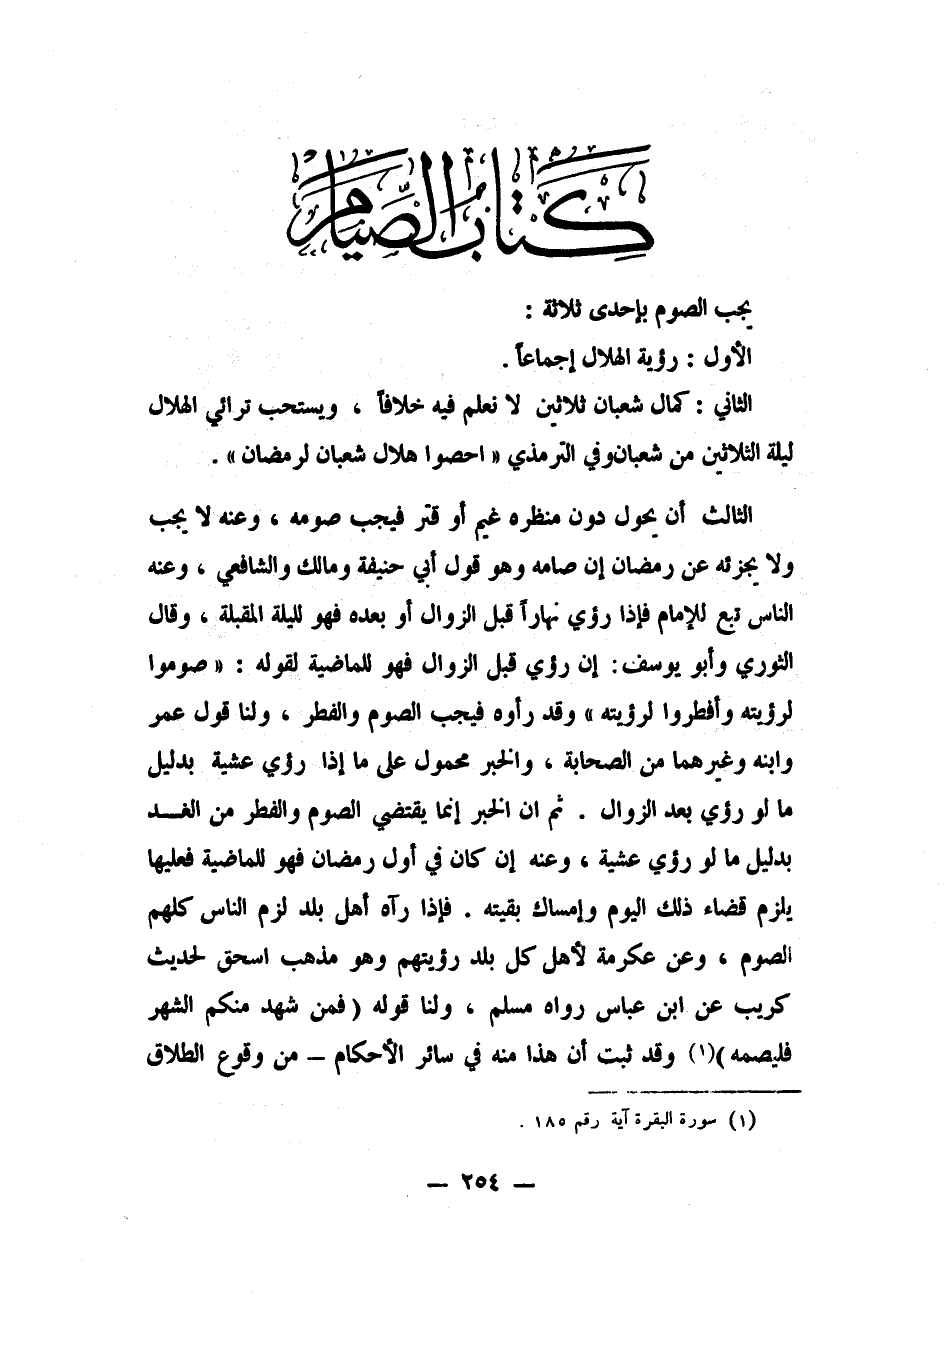 كتاب الصيام
يجب الصوم بإحدى ثلاثة :
الأول : رؤية الهلال إجماعاً .
الثاني : كمال شعبان ثلاثين لا نعلم فيه خلافاً ، ويستحب ترائي الهلال
ليلة الثلاثين من شعبان وفي الترمذي « احصوا هلال شعبان لرمضان » .
الثالث أن يحول دون منظره غيم أو قتر فيجب صومه ، وعنه لا يجب
ولا يجزئه عن رمضان إن صامه وهو قول أبي حنيفة ومالك والشافعي ، وعنه
الناس تبع للإمام فإذا رؤي نهاراً قبل الزوال أو بعده فهو لليلة المقبلة ، وقال
الثوري وأبو يوسف : إن رؤي قبل الزوال فهو للماضية لقوله : « صوموا
لرؤيته وأفطروا لرؤيته » وقد رأوه فيجب الصوم والفطر ، ولنا قول عمر
وابنه وغيرهما من الصحابة ، والخبر محمول على ما إذا رؤي عشية بدليل
ما لو رؤي بعد الزوال . ثم ان الخبر إنما يقتضي الصوم والفطر من الغـــد
بدليل ما لو رؤي عشية ، وعنه إن كان في أول رمضان فهو للماضية فعليها
يلزم قضاء ذلك اليوم وإمساك بقيته . فإذا رآه أهل بلد لزم الناس كلهم
الصوم ، وعن عكرمة لأهل كل بلد رؤيتهم وهو مذهب اسحق لحديث
كريب عن ابن عباس رواه مسلم ، ولنا قوله ( فمن شهد منكم الشهر
فليصمه )(١) وقد ثبت أن هذا منه في سائر الأحكام – من وقوع الطلاق
(١) سورة البقرة آية رقم ١٨٥ .
– ٢٥٤ –